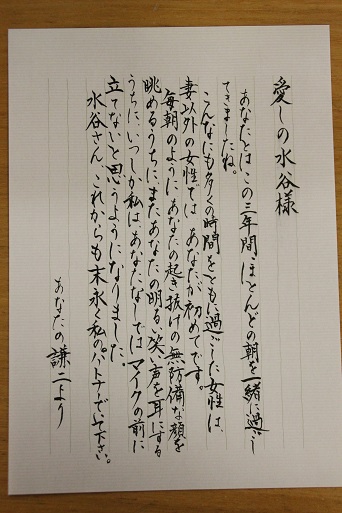 愛しの水谷様
あなたとはこの三年間、ほとんどの朝を一緒に過ごし
てきましたね。
こんなにも多くの時間をともに過ごした女性は、
妻以外の女性では、あなたが初めてです。
毎朝のようにあなたの起き抜けの無防備な顔を
眺めるうちに、またあなたの明るい笑い声を耳にする
うちに、いつしか私はあなたなしではマイクの前に
立てないと思うようになりました。
水谷さん、これからも末永く私のパートナーでいて下さい。
あなたの謙二より